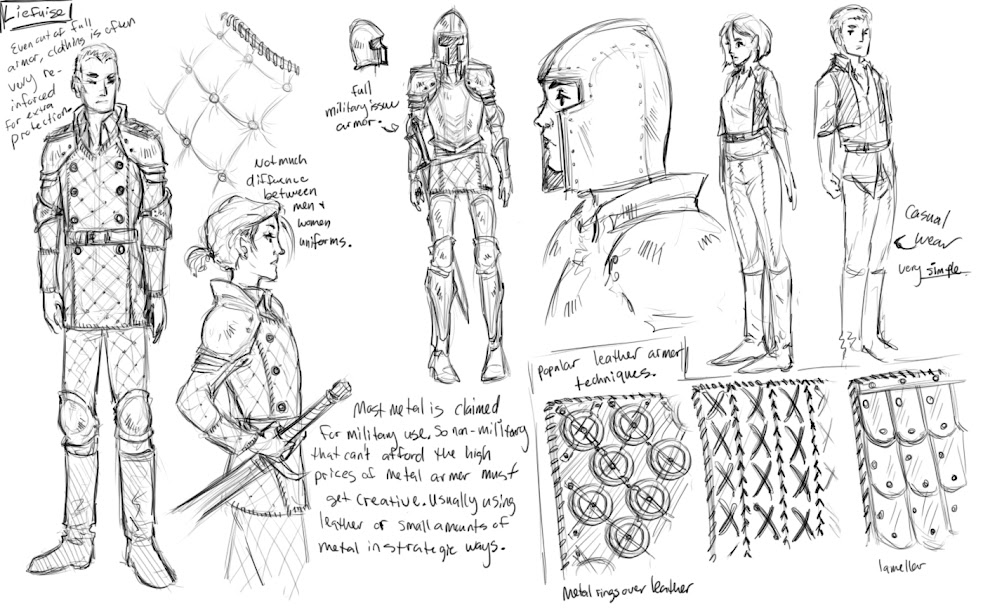 Liefuise
Even out of full
armor, clothing is often
very re-
inforced
for extra
protection
Not much
diffuence
between
men +
women
uniforms.
full
military issue
armor.
Casual
wear
very simple
Most metal is claimed
for military use. So non-military
that can't afford the high
prices of metal armor must
get creative. Usually using
leather or small amounts of
metal in strategic ways.
Popular leather armor
techniques.
Metal rings over leather
lamellar